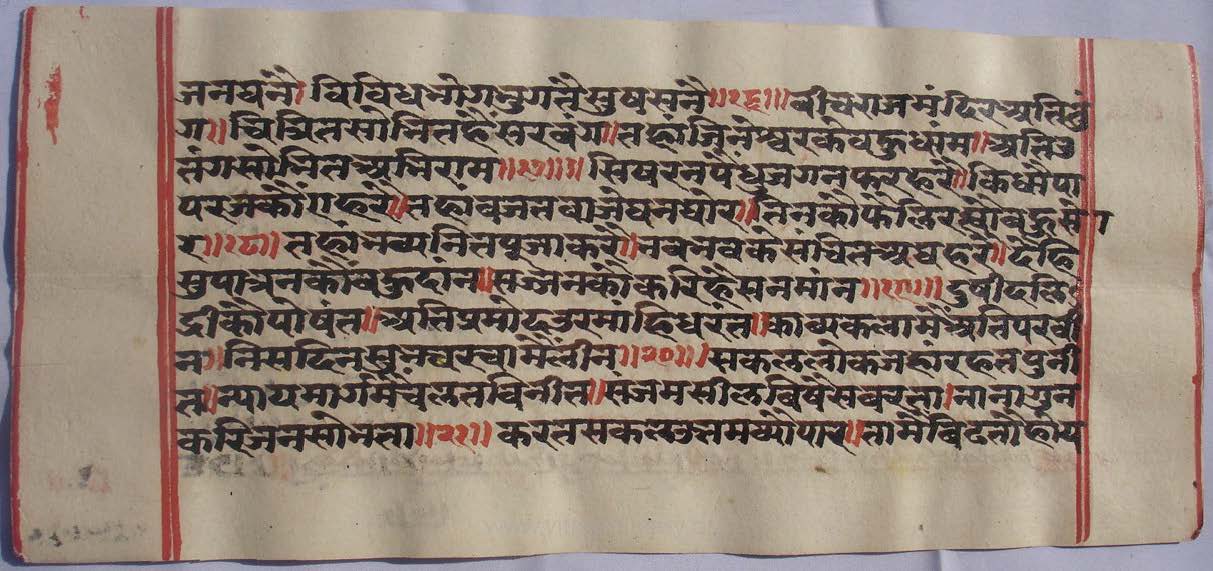 जनघनैं। विविधभोगभुगतैंसुषसनैं॥१६॥ वीचराजमंदिरअतिचुं
ग॥ चित्रितसोभितहैंसरवंग॥ तहांजिनेश्वरकेवहुधाम॥ अतिउ
तंगसोभितअभिराम॥१७॥ सिषरनपैंधुजगनफरहरैं॥ किधौंपा
परजकौंगहरैं॥ तहांवजतवाजेघनघोर॥ तिनकीफैलि
र॥१८॥ तहांभव्यनितपूजाकरैं॥ भवभवकेसंचितअघहरैं॥ देहि
सुपात्रनकौंवहुदांन॥ सज्जनकौंकरिहैंसनमांन॥१९॥ दुषीदलि
द्रीकौंपोषंत॥ अतिप्रमोदउरमांहिधरंत॥ काव्यकलामैंअतिपरवी
न॥ निसदिनसुभचरचामैंलीन॥२०॥ सकललोकजहांरहतपुनी
त॥ न्यायमार्गमैंचलतविनीत॥ सजमसीलविषैंसवरता॥ नानागुन
करिजनसोभता॥२१॥ करतसकलउत्तमव्यौपार॥ तामैंविदलौंहोय